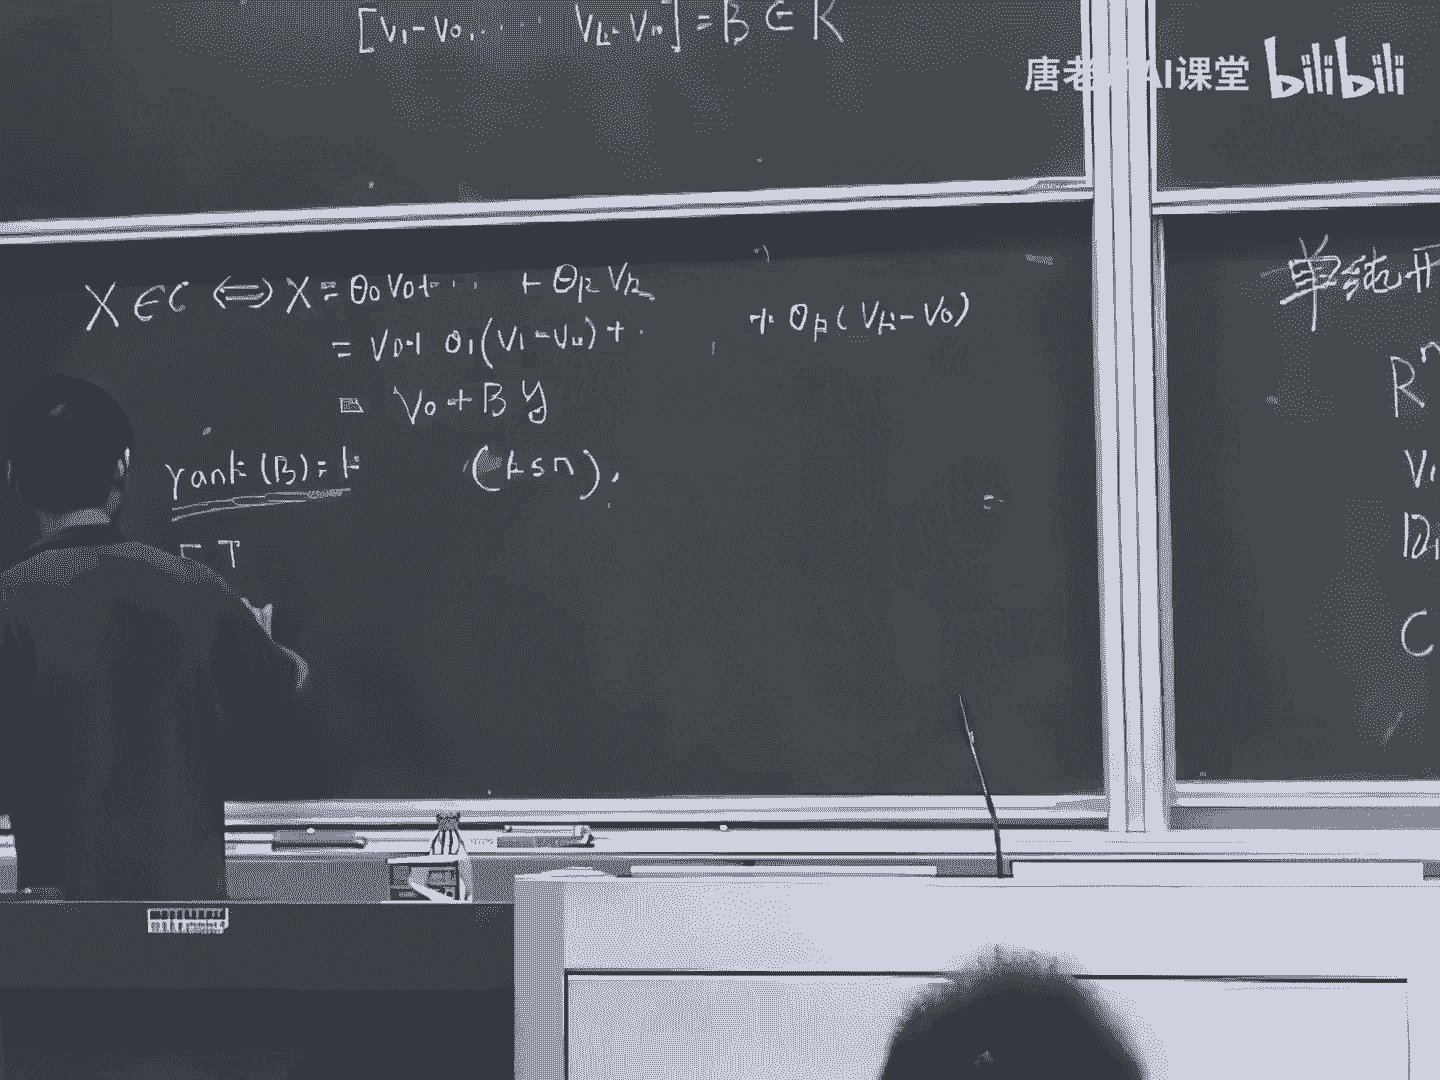 [V₁-V₀,... Vₖ-V₀] = B ∈ R
唐老 AI课堂 bilibili
X ∈ C ⟺ X = θ₀V₀+... + θₖVₖ
= V₀+ θ₁(V₁-V₀) + . + θₖ(Vₖ-V₀)
= V₀ + B y
rank(B) = k (k≤n).
单纯形
Rⁿ
V₁
C